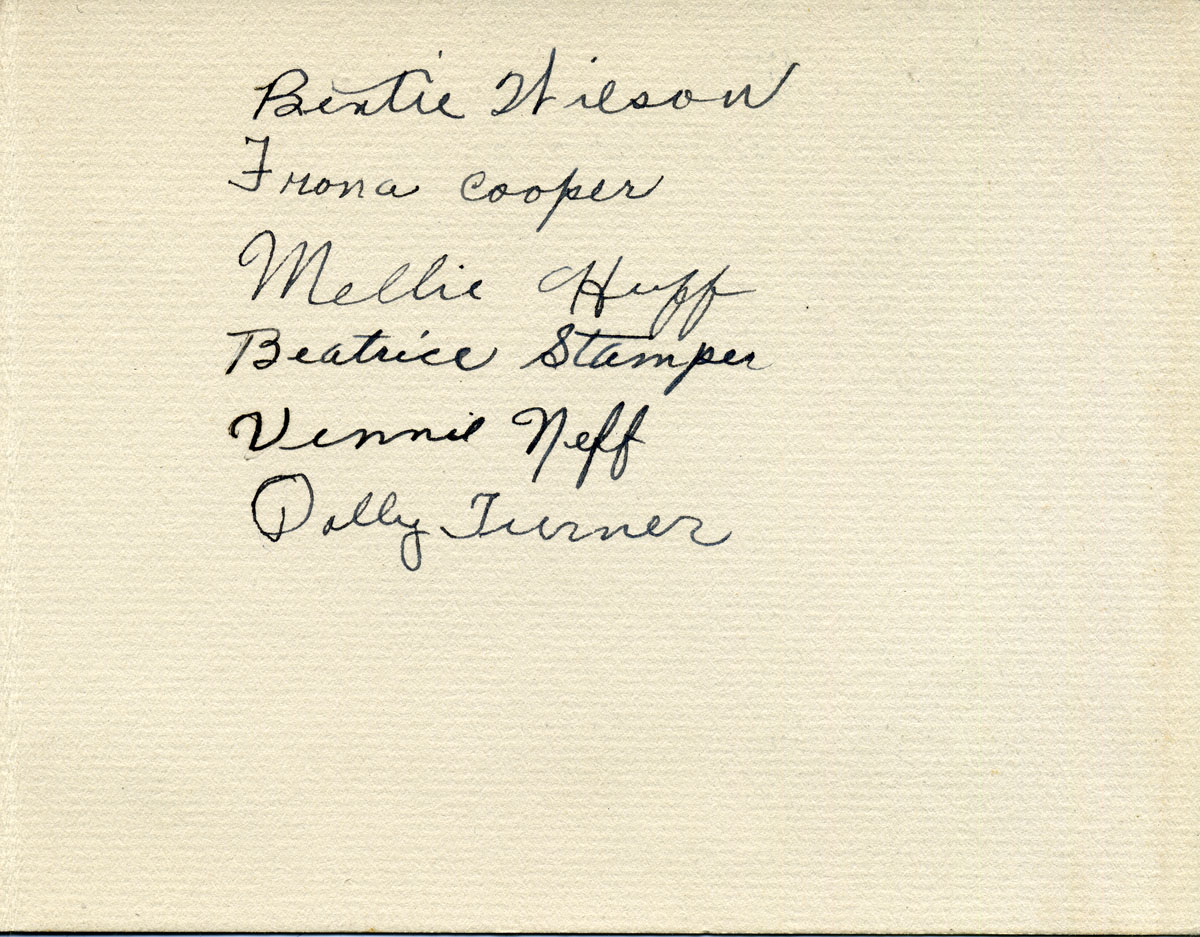 Bertie Wilson
Frona Cooper
Mellie Huff
Beatrice Stamper
Vennie Neff
Dolly Turner